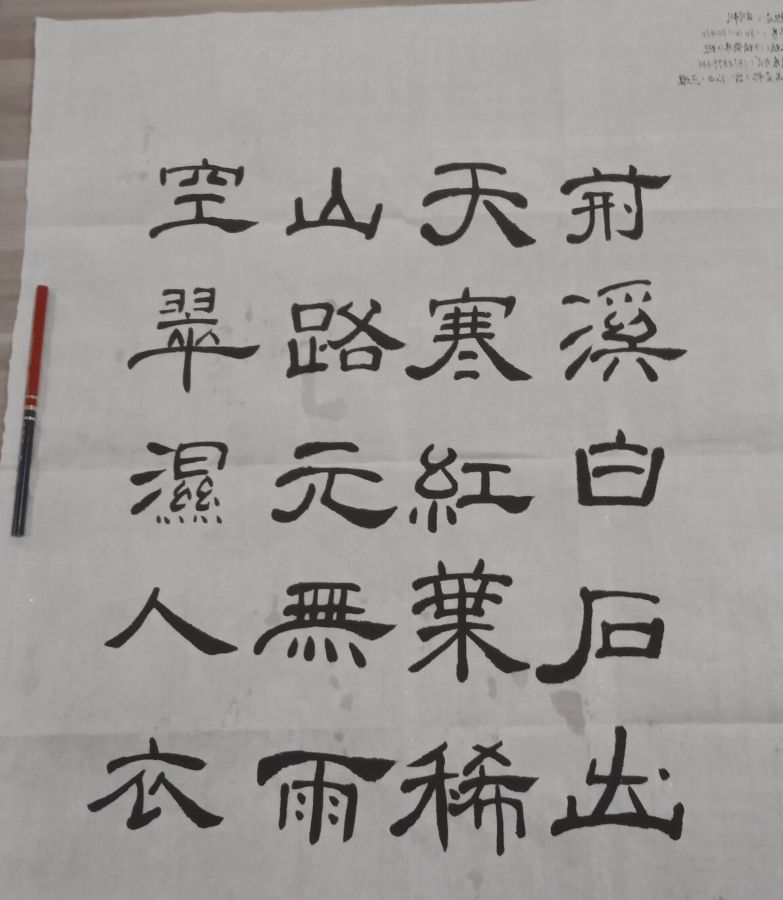 荆溪白石出
天寒紅葉稀
山路元無雨
空翠濕人衣